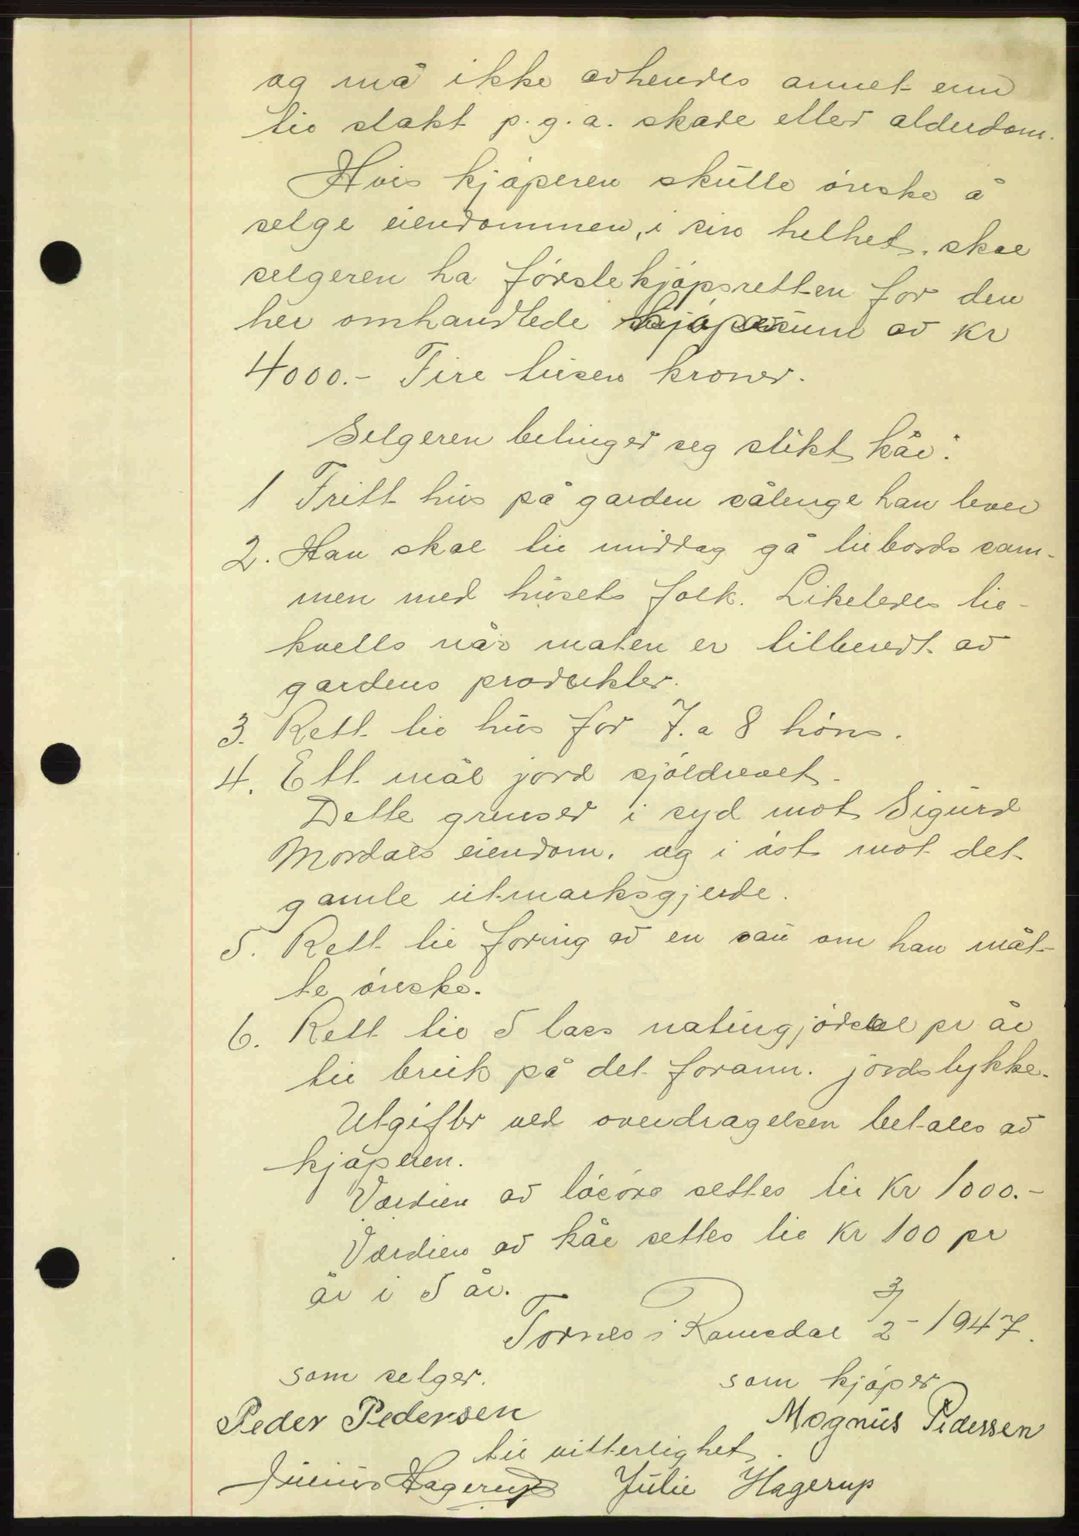 og må ikke avhendes annet enn
til slakt p.g.a. skade eller alderdom.
Hvis kjøperen skulle ønske å
selge eiendommen, i sin helhet, skal
selgeren ha førstekjøpsretten for den
her omhandlede kjøpesum av kr
4000.- Fire tusen kroner.
Selgeren betinger seg slikt kår:
1 Fritt hus på garden sålenge han lever
2. Han skal til middag gå tilbords sam-
men med husets folk. Likeledes til-
kvells når maten er tilberedt av
gardens produkter.
3. Rett til hus for 7 a 8 høns.
4. Ett mål jord sjøldrevet.
Dette grenser i syd mot Sigurd
Mordals eiendom, og i øst mot det
gamle utmarksgjerde.
5. Rett til foring av en sau om han måt-
te ønske.
6. Rett til 5 lass naturgjødsel pr år
til bruk på det forann. jordstykke.
Utgifter ved overdragelsen betales av
kjøperen.
Verdien av løsøre settes til Kr 1000.-
Verdien av kår settes til Kr 100 pr
år i 5 år.
Tornes i Romsdal 3/2-1947.
som selger.
som kjøper
Peder Pedersen
Magnus Pedersen
til vitterlighet.
Hagerup
Julie Hagerup